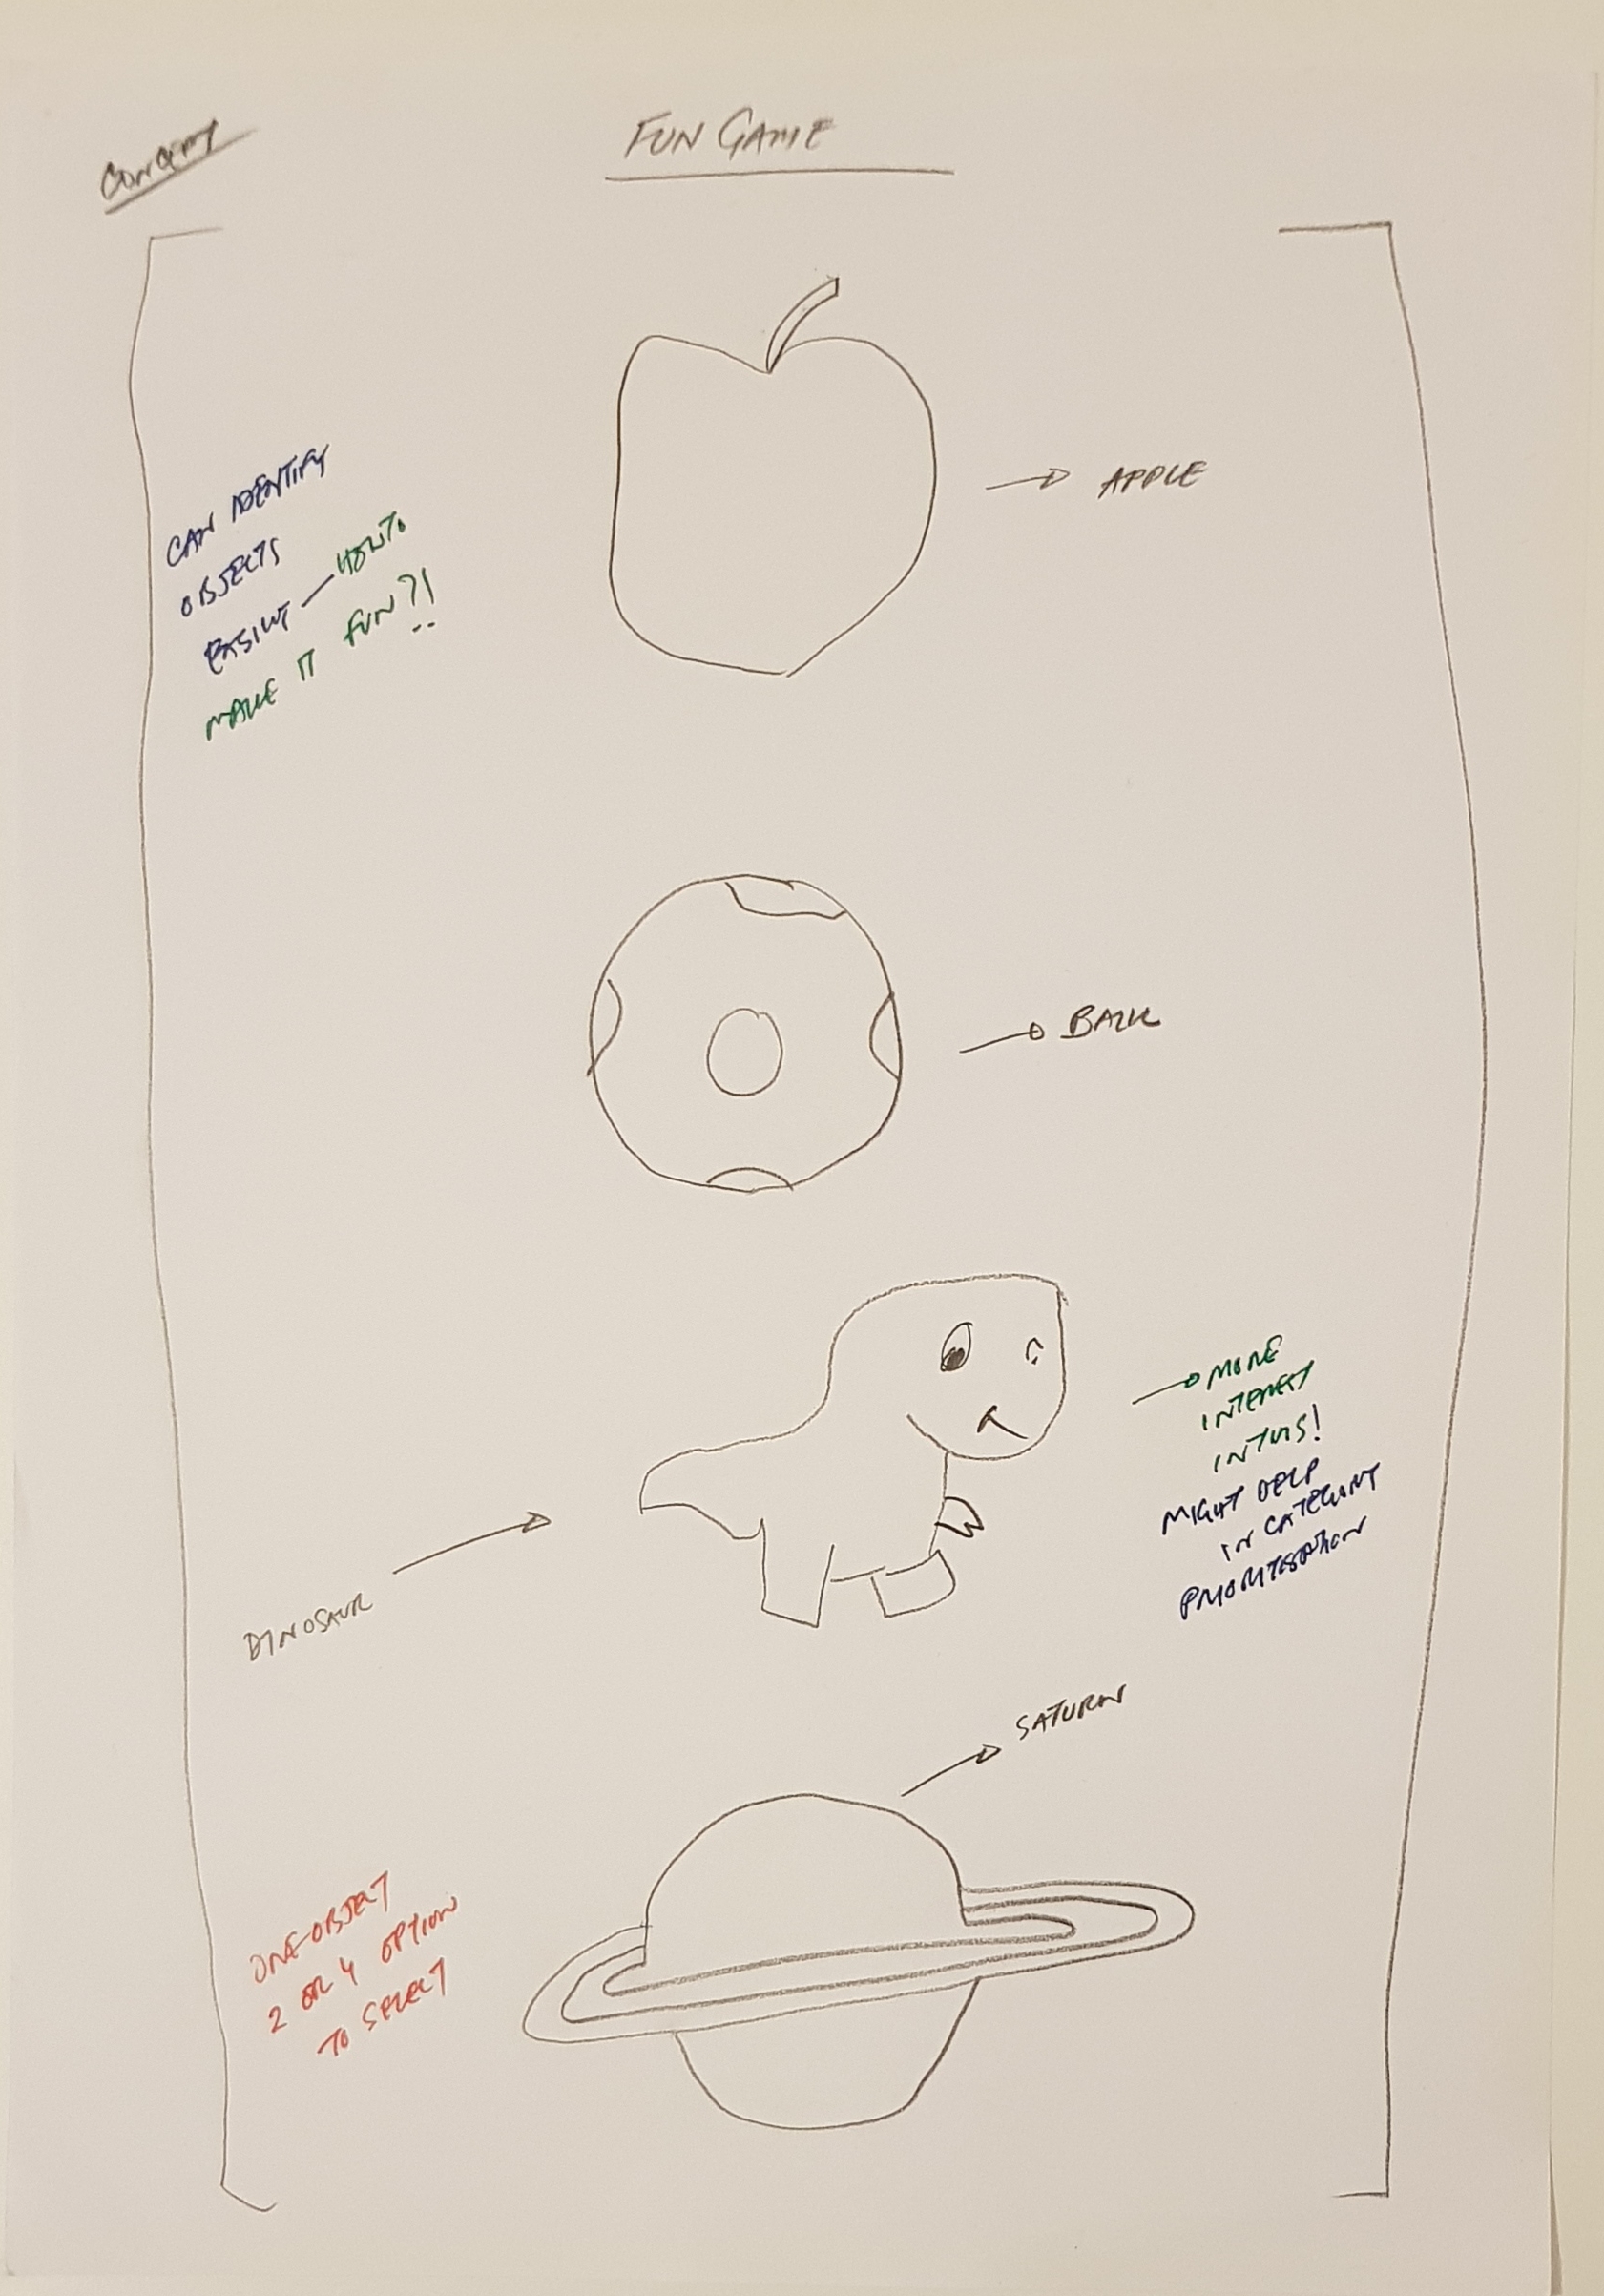 CONCEPT
FUN GAME
APPLE
CAN IDENTIFY
OBJECTS
EASILY — HOW TO
MAKE IT FUN?!
BALL
MORE
INTEREST
IN THIS!
MIGHT HELP
IN CATEGORY
PRIORITISATION
DINOSAUR
SATURN
ONE OBJECT
2 OR 4 OPTION
TO SELECT